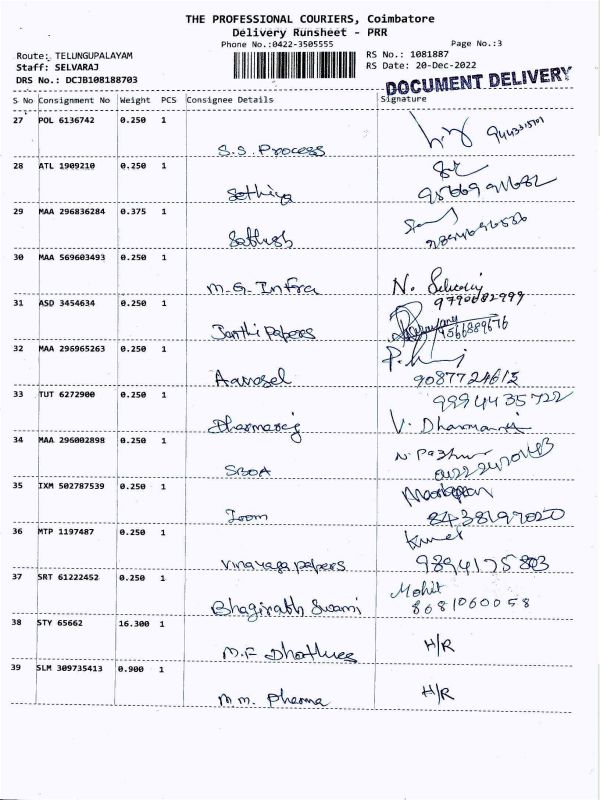 THE PROFESSIONAL COURIERS, Coimbatore
Delivery Runsheet - PRR
Phone No.:0422-3505555 Page No.:3
Route: TELUNGUPALAYAM RS No.: 1081887
Staff: SELVARAJ RS Date: 20-Dec-2022
DRS No.: DCJB108188703
DOCUMENT DELIVERY
S No Consignment No Weight PCS Consignee Details Signature
27 POL 6136742 0.250 1
S.S. Process
28 ATL 1909210 0.250 1
Sathiya
29 MAA 296836284 0.375 1
Sathish
30 MAA 569603493 0.250 1
M.G. Infra N.
9790682999
31 ASD 3454634 0.250 1
Papers 9566889676
32 MAA 296965263 0.250 1
Aavosel 9087724613
33 TUT 6272900 0.250 1 9994435722
Dharmaraj V. Dharmaraj
34 MAA 296002898 0.250 1
SBOA
35 IXM 502787539 0.250 1
Zoom 8438197020
36 MTP 1197487 0.250 1
Vinayaga papers 9894175803
37 SRT 61222452 0.250 1 Mohit
Bhagirath Swami 8681060058
38 STY 65662 16.300 1 H/R
M.F
39 SLM 309735413 0.900 1 H/R
M.M. Pharma